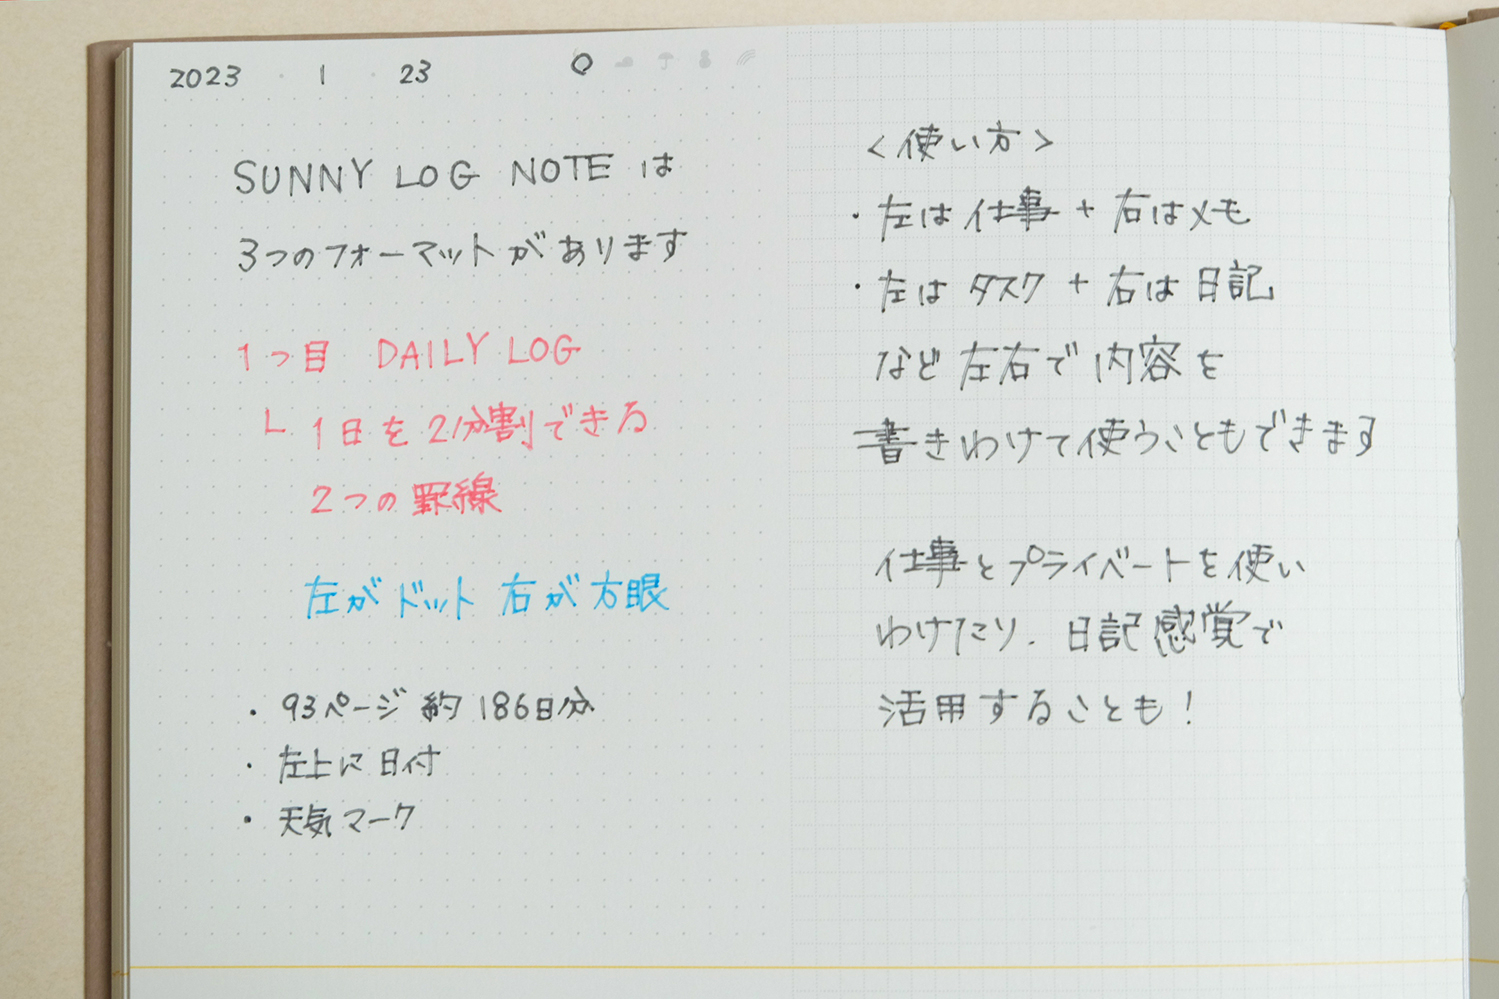 2023 ・ 1 ・ 23
SUNNY LOG NOTE は
3つのフォーマットがあります
1つ目 DAILY LOG
└ 1日を2分割できる
2つの罫線
左がドット 右が方眼
・93ページ 約186日分
・左上に日付
・天気マーク
<使い方>
・左は仕事 + 右はメモ
・左はタスク + 右は日記
など左右で内容を
書きわけて使うこともできます
仕事とプライベートを使い
わけたり、日記感覚で
活用することも!